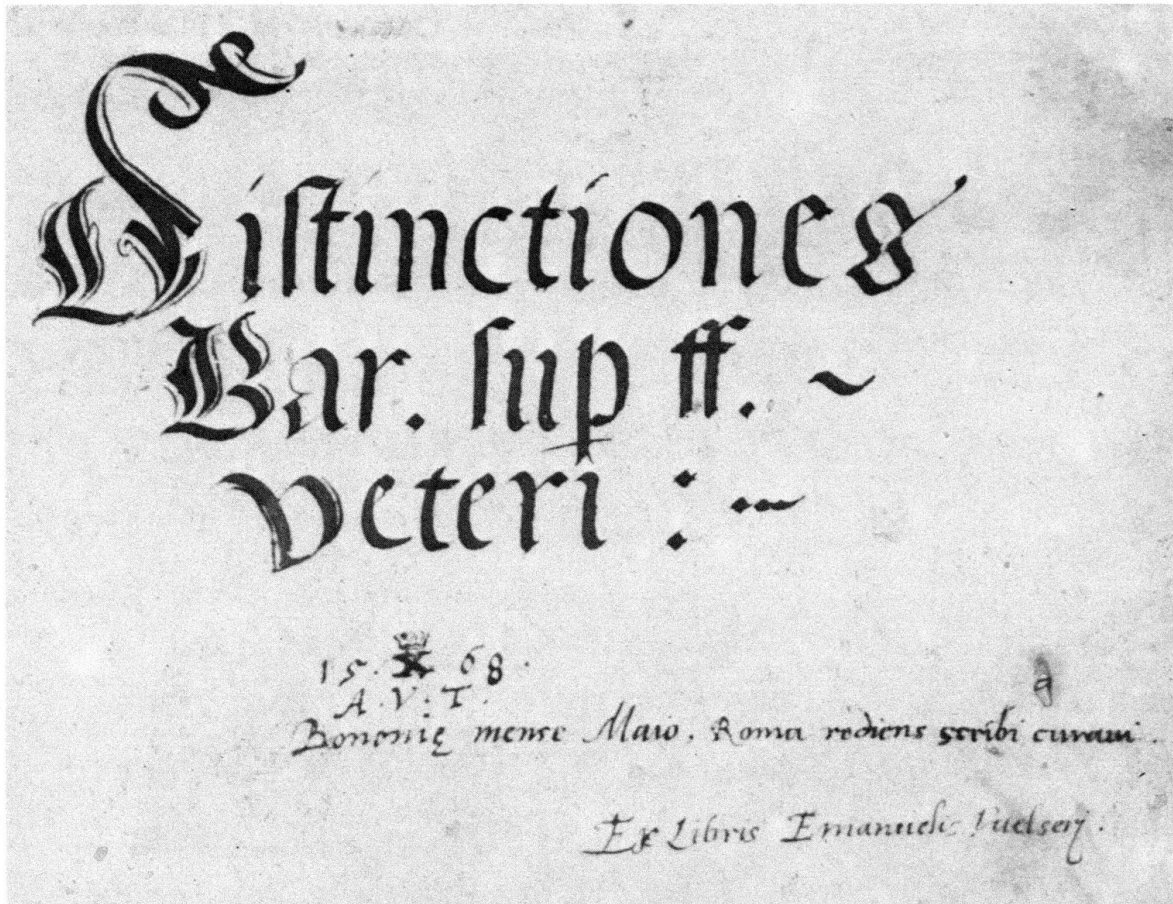 Distinctiones
Bar. sup ff. ~
veteri : ~
15 · 68 ·
A · V : T ·
Bononię mense Maio. Roma rediens scribi curaui.
Ex Libris Emanuelis Vuelserj.